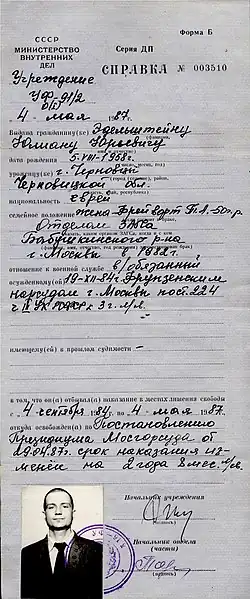 Форма Б
СССР
МИНИСТЕРСТВО
ВНУТРЕННИХ
ДЕЛ
Серия ДП
СПРАВКА № 003510
Учреждение
УФ-91/2
4 мая 1987 г.
Выдана гражданину(ке) Эдельштейну
Юлию Юрьевичу
дата рождения 5-VIII-1958 г.
(число, месяц, год)
уроженцу(ке) г. Черновцы
Черновицкой обл.
национальность еврей
семейное положение жена-
Отделом ЗАГСа
Бабушкинского р-на
г. Москвы в 1982 г.
отношение к военной службе в/обязанный
осужденному(ой) 19-XII-84г. Фрунзенским
нарсудом г. Москвы по ст. 224
УК РСФСР к 3 г. л/св.
имеющему(ей) в прошлом судимости –
в том, что он(а) отбывал(а) наказание в местах лишения свободы
с 4 сентября 1984 г. по 4 мая 1987 г.
откуда освобожден(а) по Постановлению
Президиума Мосгорсуда от
29.04.87г. срок наказания из-
менен на 2 года 8 мес. л/св.
Начальник учреждения
(подпись)
Начальник отдела
(части)
(подпись)